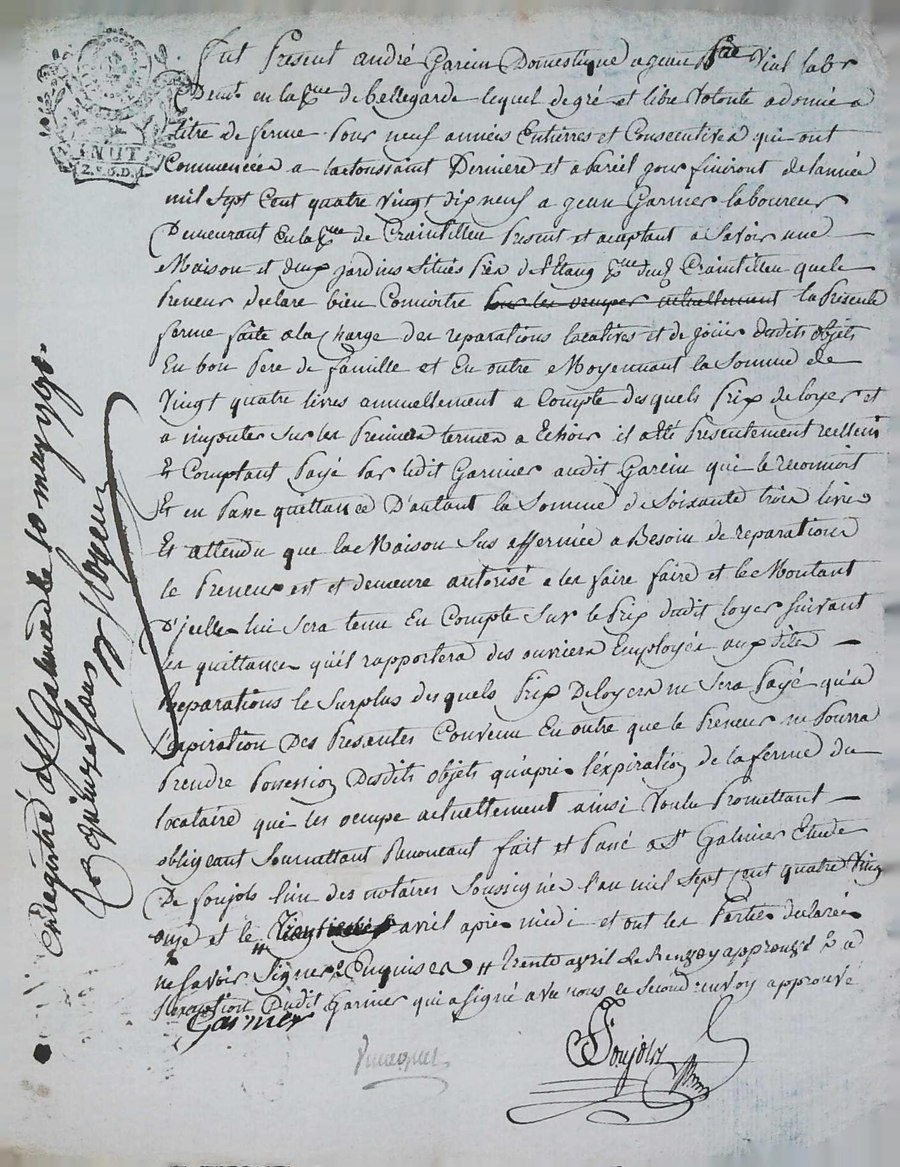 MINUT
2. s. 6. D. r
Fut Present andré Garcin Domestique a jean Vial labr
Demt. en la psse de bellegarde lequel de gré et libre Volonté a donné a
titre de ferme Pour neuf années Entierres et Consecutives qui ont
Commencées a latoussaint Derniere et a pareil jour finiront de lannée
mil Sept Cent quatre Vingt dix neuf a jean Garnier laboureur
Demeurant En la psse de Craintilleu Present et aceptant a Savoir une
Maison et deux jardins Situés Prez de l'Etang psse dud Craintilleu que le
Preneur declare bien Connoitre pour les ocuper actuellement la Presente
ferme faite a la Charge des reparations locatives et de joüir desdits objets
En bon Pere de famille et En outre Moyennant la Somme de
Vingt quatre livres annuellement a Compte des quels Prix de loyer et
a imputer Sur les Premiers termes a Echoir il a Eté Presentement réellemt
et Comptant Payé Par ledit Garnier audit Garcin qui le reconnoit
Et en Passe quittance D'autant la Somme de Soixante trois livres
Et attendu que la Maison Sus affermée a Besoin de reparations
le Preneur est et demeure autorisé a les faire faire et le Montant
D'jcelles lui Sera tenu En Compte Sur le Prix dudit loyer Suivant
les quittances qu'il rapportera des ouvriers Employés aux dites
Reparations le Surplus des quels Prix De loyers ne Sera Payé qu'a
l'expiration Des Presentes Convenu En outre que le Preneur ne Pourra
Prendre Possession Desdits objets qu'après l'Expiration de la ferme du
locataire qui les ocupe actuellement ainsi Voulu Promettant
obligeant Soumettant Renonceant fait et Passé a St Galmier Etude
De Foujols l'un des notaires Soussignés l'an mil Sept Cent quatre Vingt
onze et le avril après midi et ont les Parties declaré
ne Savoir Signer Enquises # trente avril a
l'exception Dudit Garnier qui a signé avec nous le Second renvoy approuvé
Garnier
Foujols
Enregistré a St Galmier le 10 may 1791.
Reçu quinze Sous